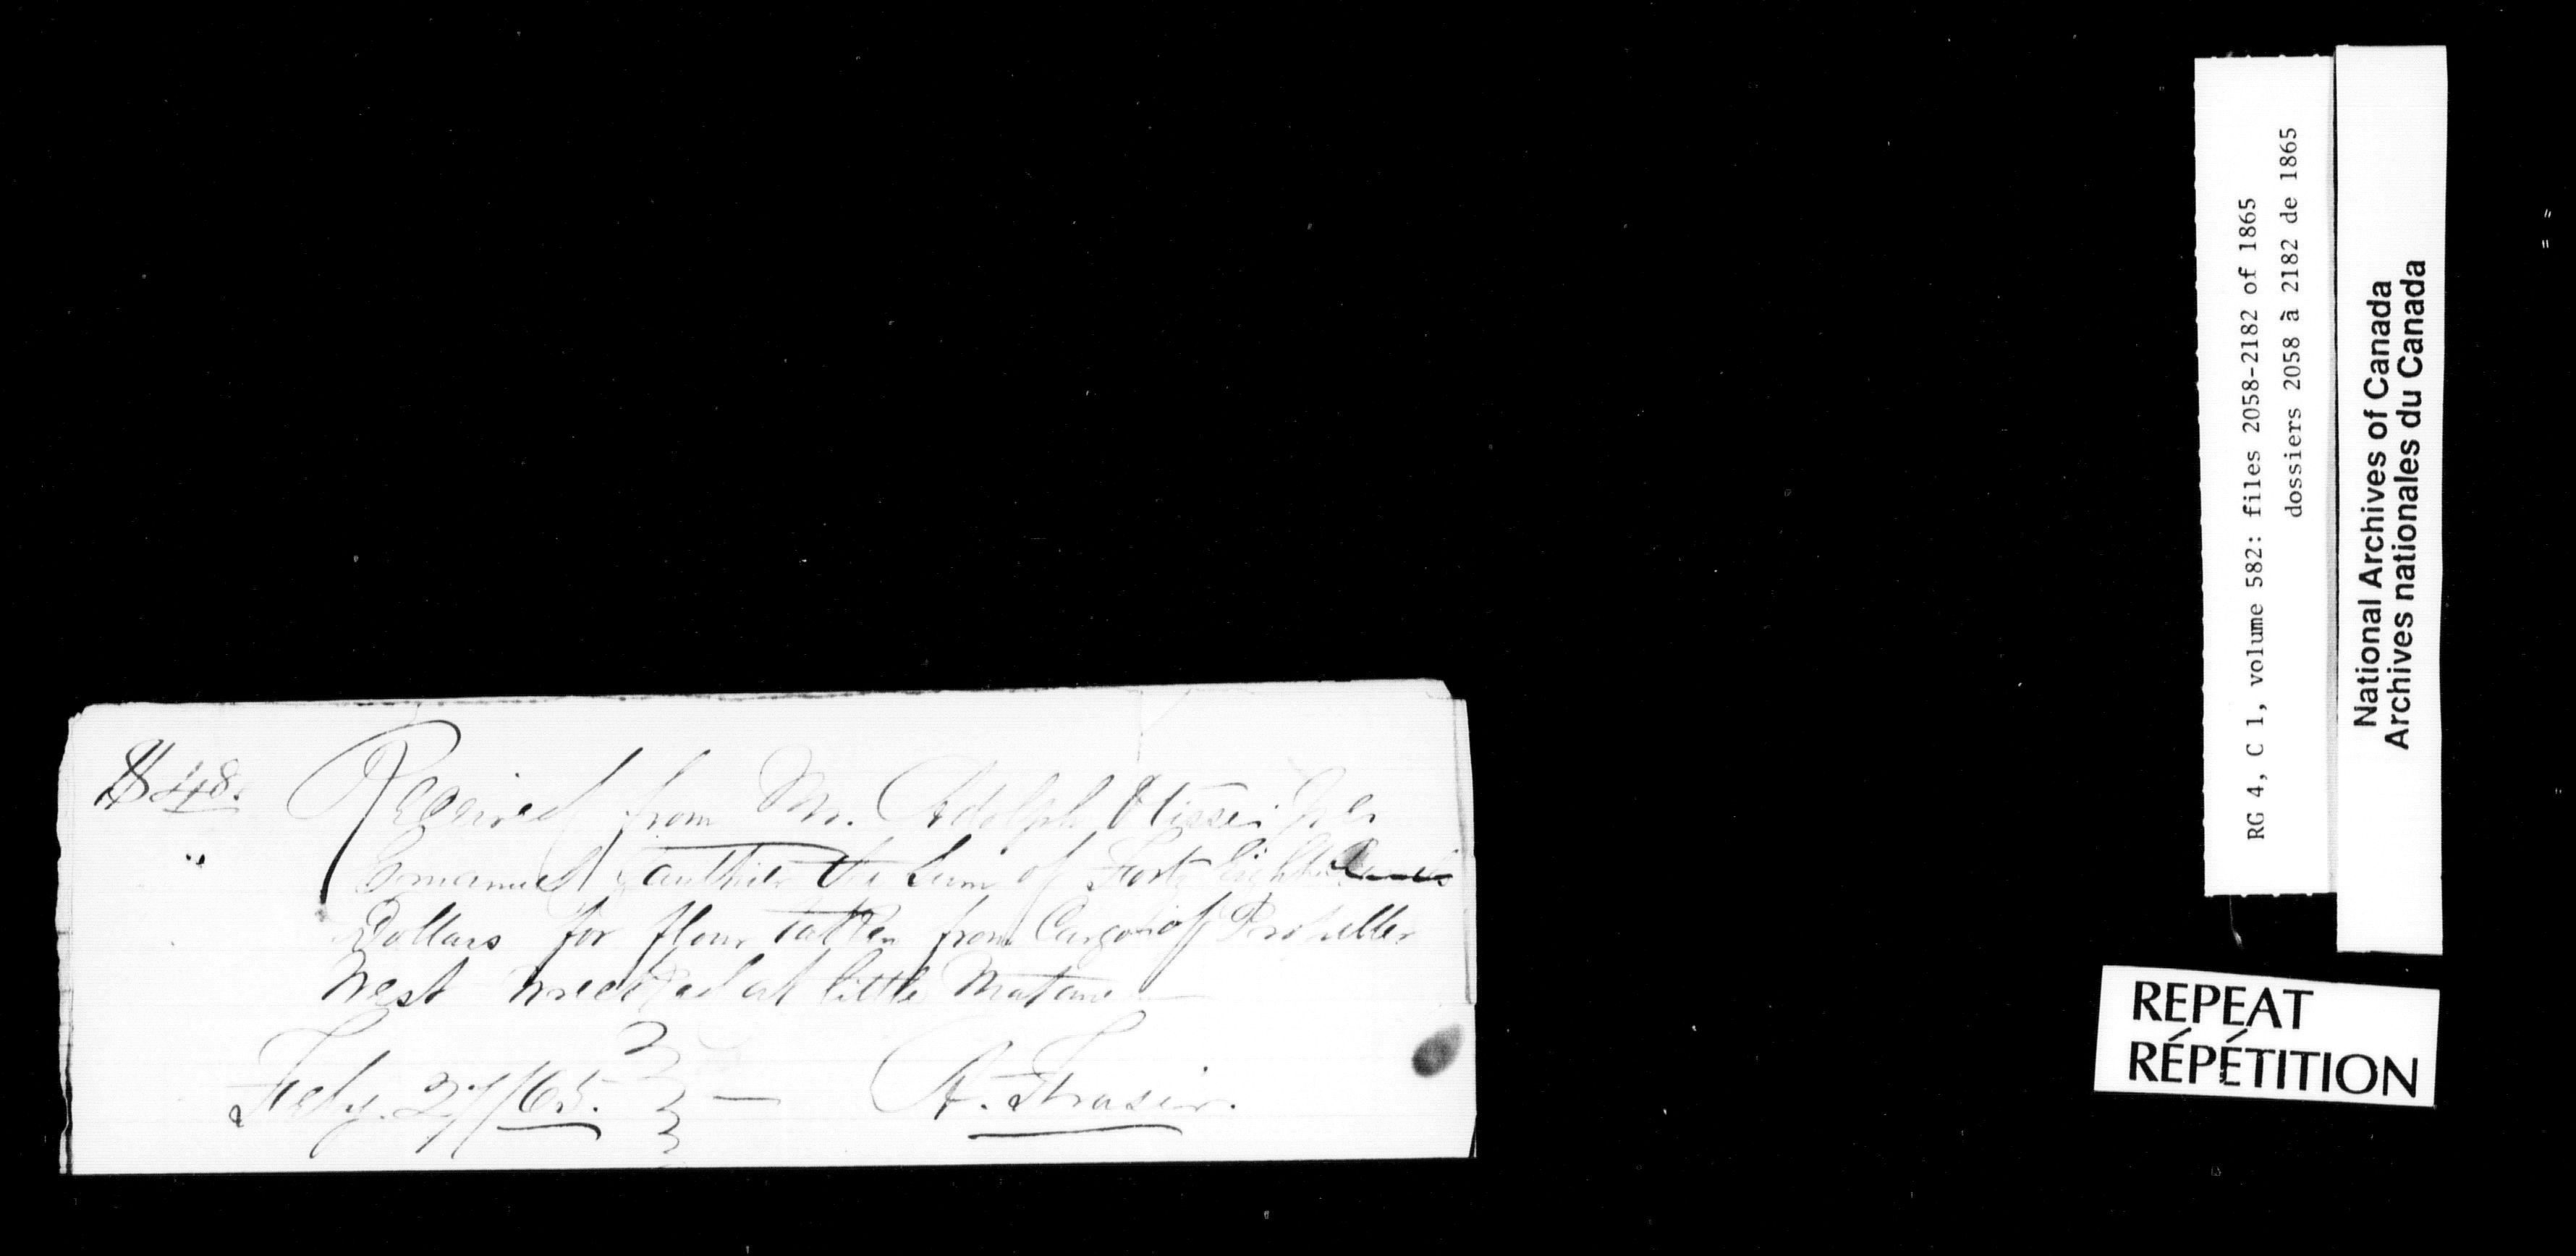 $48. Received from Mr. Adolph Tissei per
Emanuel Gauthier the Sum of Forty Eight
Dollars for flour taken from Cargo off Propeller
West wrecked at little Matane
Feby. 27/65. — A. Frasier.
RG 4, C 1, volume 582: files 2058-2182 of 1865
dossiers 2058 à 2182 de 1865
National Archives of Canada
Archives nationales du Canada
REPEAT
RÉPÉTITION